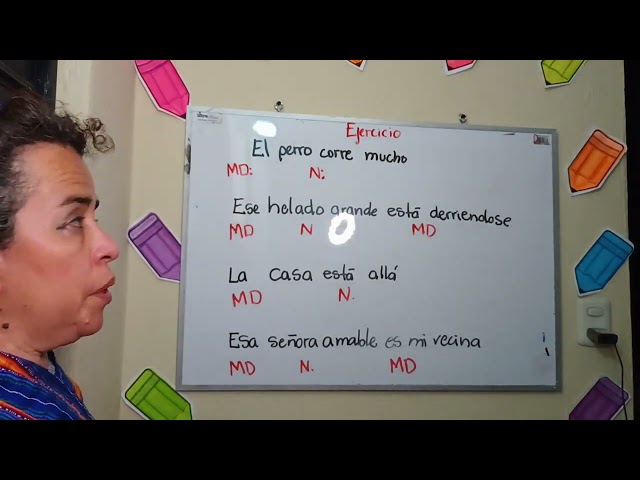 Ejercicio
El perro corre mucho
MD: N:
Ese helado grande está derriendose
MD N MD
La casa está allá
MD N.
Esa señora amable es mi vecina
MD N. MD